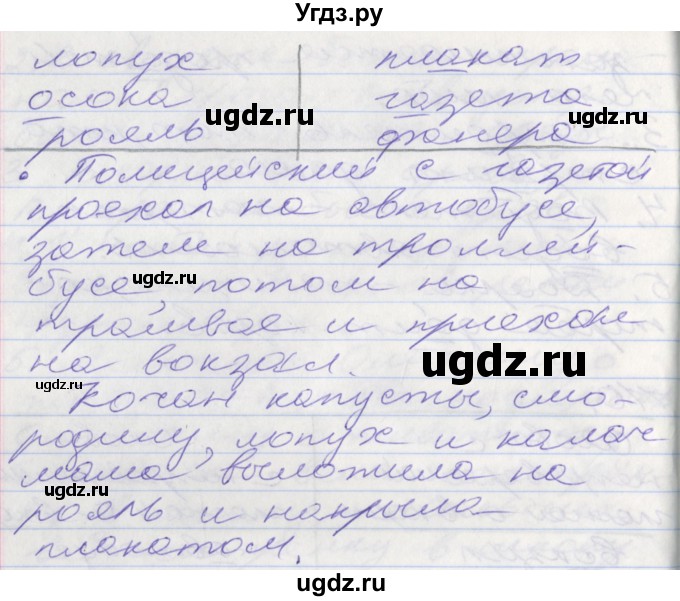 Угдз.ру
лопух плакат
осока газета
рояль фанера
ugdz.ru ugdz.ru
• Полицейский с газетой
проехал на автобусе,
затем на троллей-
бусе, потом на
ugdz.ru ugdz.ru
трамвае и приехал
на вокзал.
ugdz.ru ugdz.ru
Кочан капусты, смо-
родину, лопух и калач
мама выложила на
ugdz.ru ugdz.ru
рояль и накрыла
плакатом.
ugdz.ru